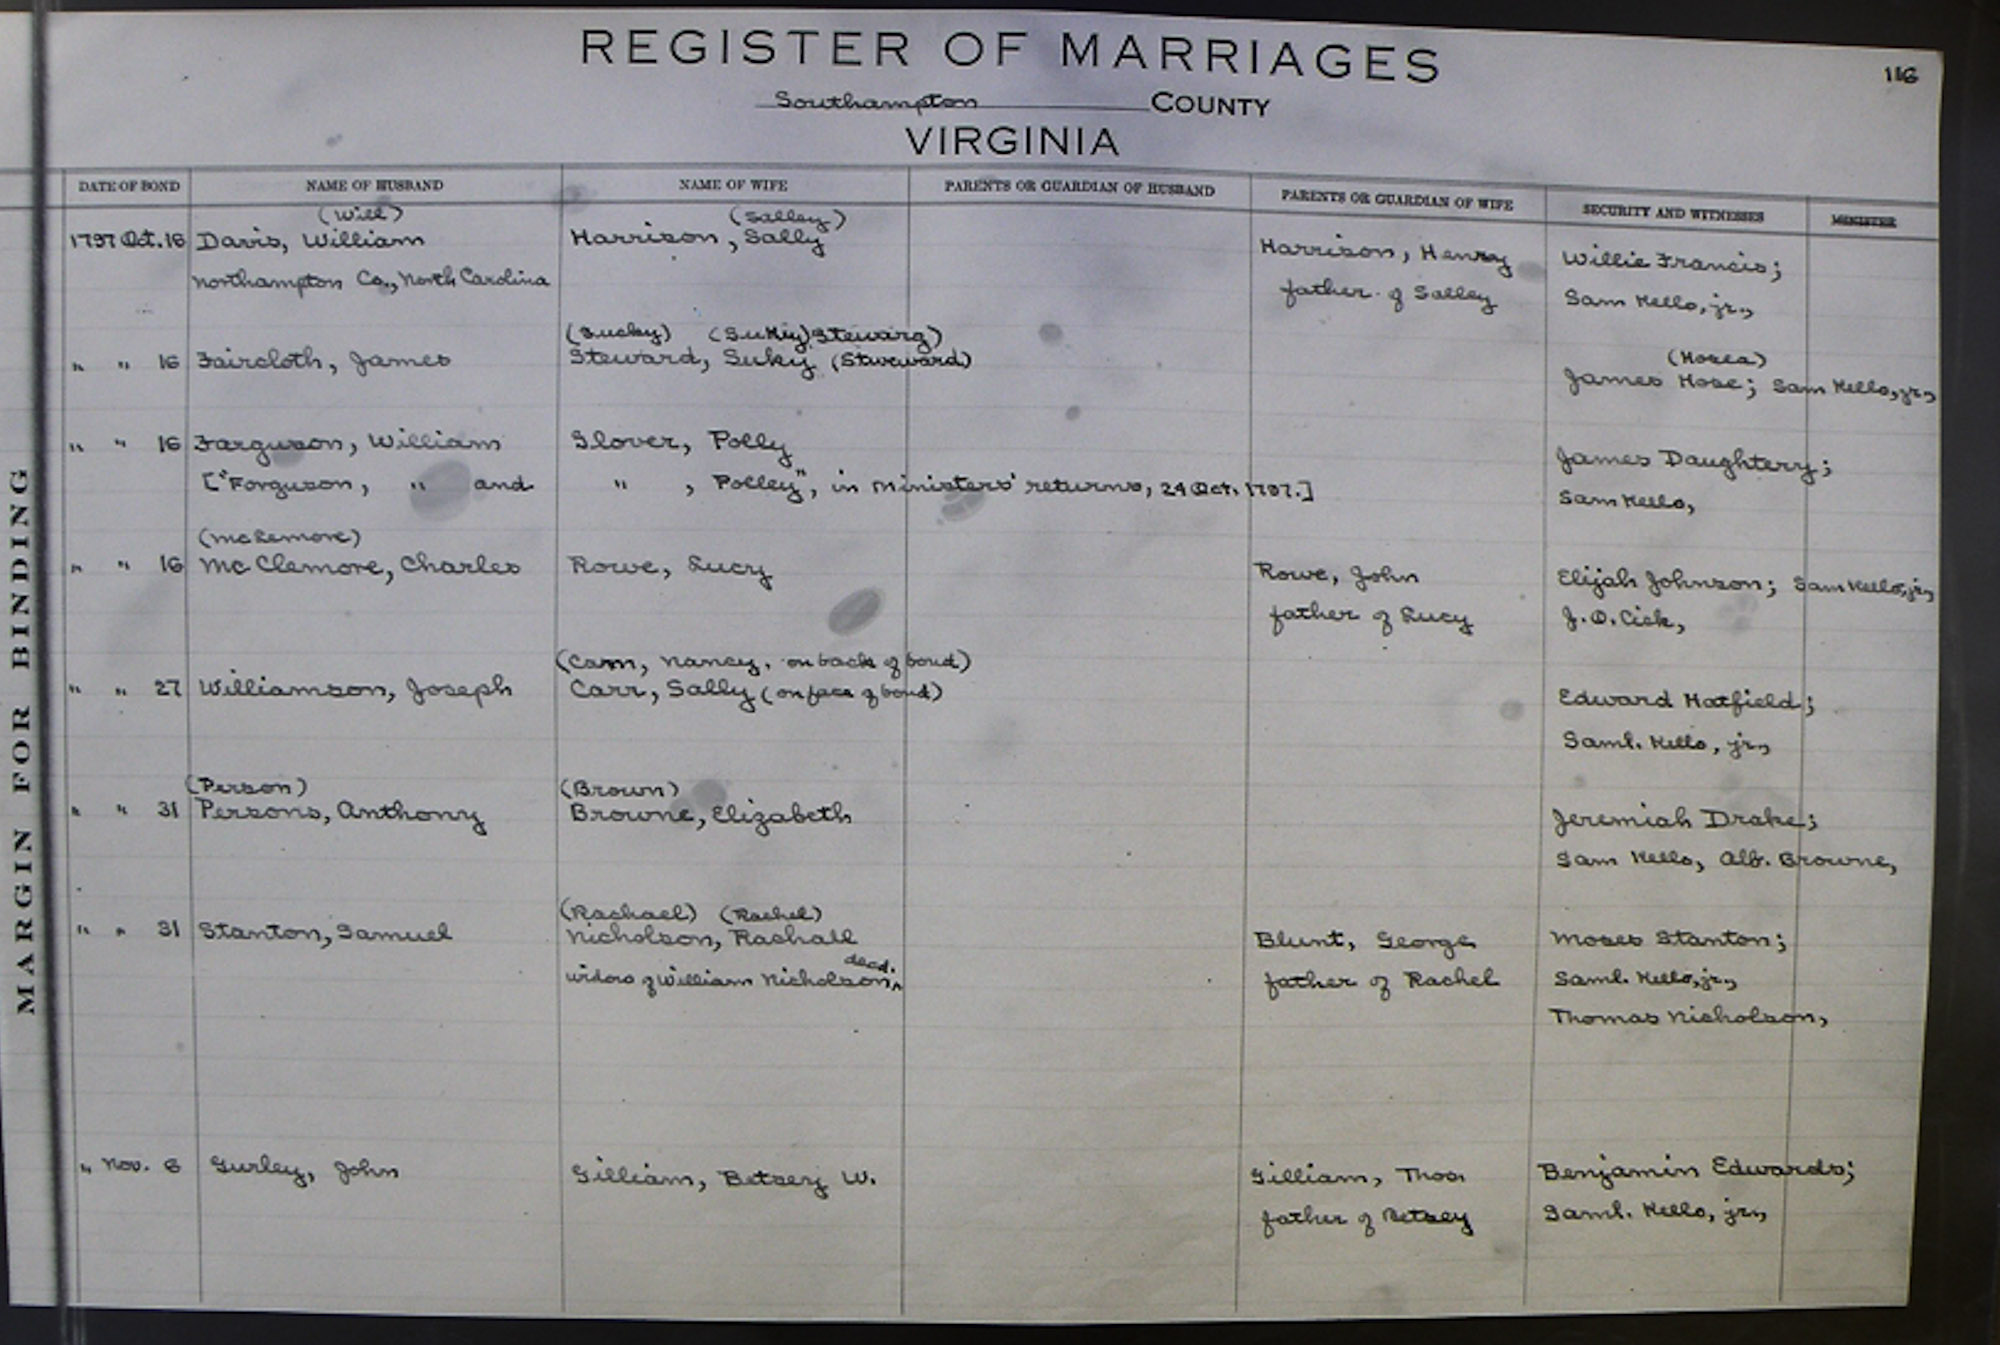 REGISTER OF MARRIAGES
116
Southampton COUNTY
VIRGINIA
MARGIN FOR BINDING
DATE OF BOND NAME OF HUSBAND NAME OF WIFE PARENTS OR GUARDIAN OF HUSBAND PARENTS OR GUARDIAN OF WIFE SECURITY AND WITNESSES MINISTER
(Will) (Salley)
1797 Oct. 16 Davis, William Harrison, Sally Harrison, Henry Willie Francis;
Northampton Co., North Carolina father of Salley Sam Kello, jr.,
(Sucky) (Sukiy) Stewarg)
" " 16 Faircloth, James Steward, Suky (Staweward) (Hosea)
James Hose; Sam Kello, jr.,
" " 16 Farguson, William Glover, Polly James Daughtery;
["Forguson, " and " , Polley", in ministers' returns, 24 Oct. 1797.] Sam Kello,
(McLemore)
" " 16 McClemore, Charles Rowe, Lucy Rowe, John Elijah Johnson; Sam Kello, jr.,
father of Lucy J. D.
(Carn, Nancy, on back of bond)
" " 27 Williamson, Joseph Carr, Sally (on face of bond) Edward Hatfield;
Saml. Kello, jr.,
(Person) (Brown)
" " 31 Persons, Anthony Browne, Elizabeth Jeremiah Drake;
Sam Kello, Alb. Browne,
(Rachael) (Rachel)
" " 31 Stanton, Samuel Nicholson, Rachall Blunt, George Moses Stanton;
decd.
widow of William Nicholson,^ father of Rachel Saml. Kello, jr.,
Thomas Nicholson,
" Nov. 6 Gurley, John Gilliam, Betsey W. Gilliam, Thos. Benjamin Edwards;
father of Betsey Saml. Kello, jr.,